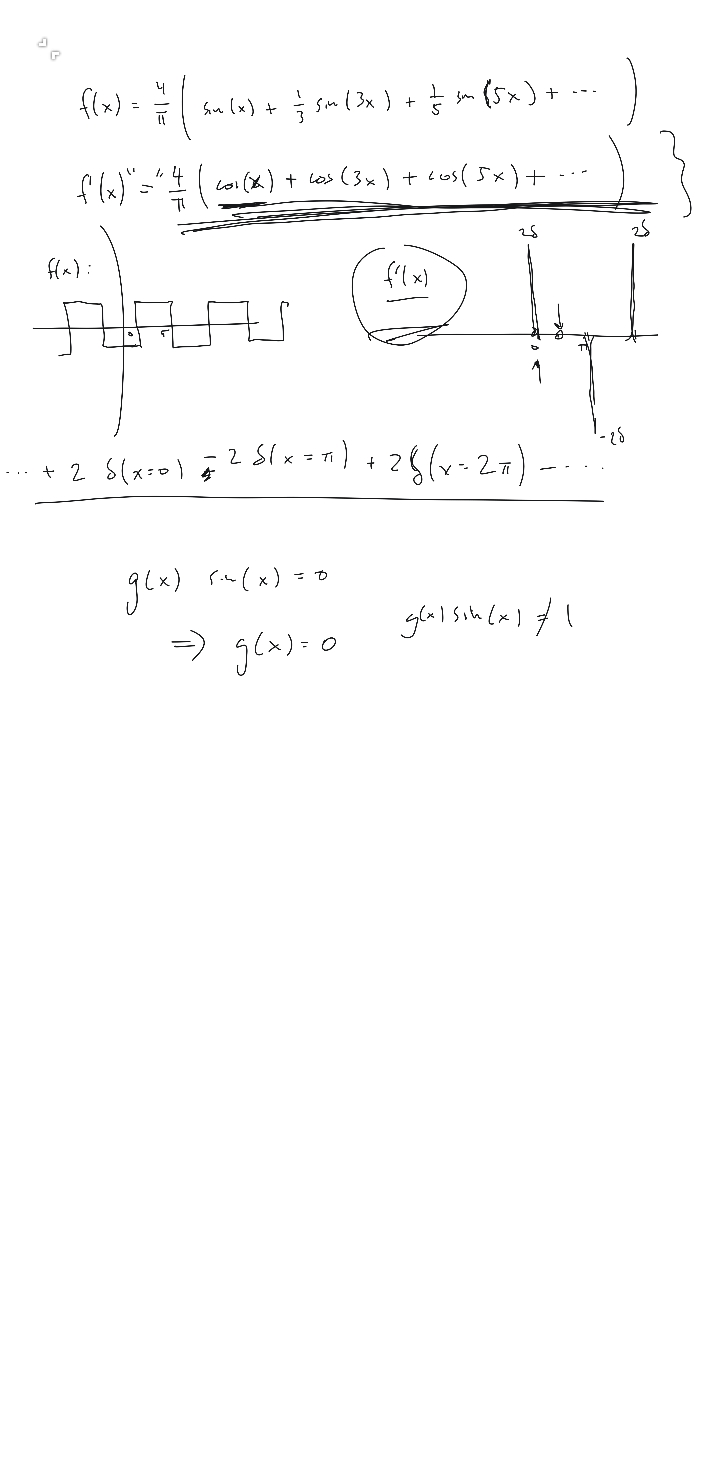 f(x) = 4/π ( sin(x) + 1/3 sin(3x) + 1/5 sin(5x) + ... )
f'(x) "=" 4/π ( cos(x) + cos(3x) + cos(5x) + ... ) }
2δ 2δ
f(x): f'(x)
0 π 0 π
-2δ
... + 2 δ(x=0) - 2 δ(x=π) + 2δ(x-2π) - ....
g(x) sin(x) = 0
g(x) sin(x) ≠ 1
⇒ g(x) = 0